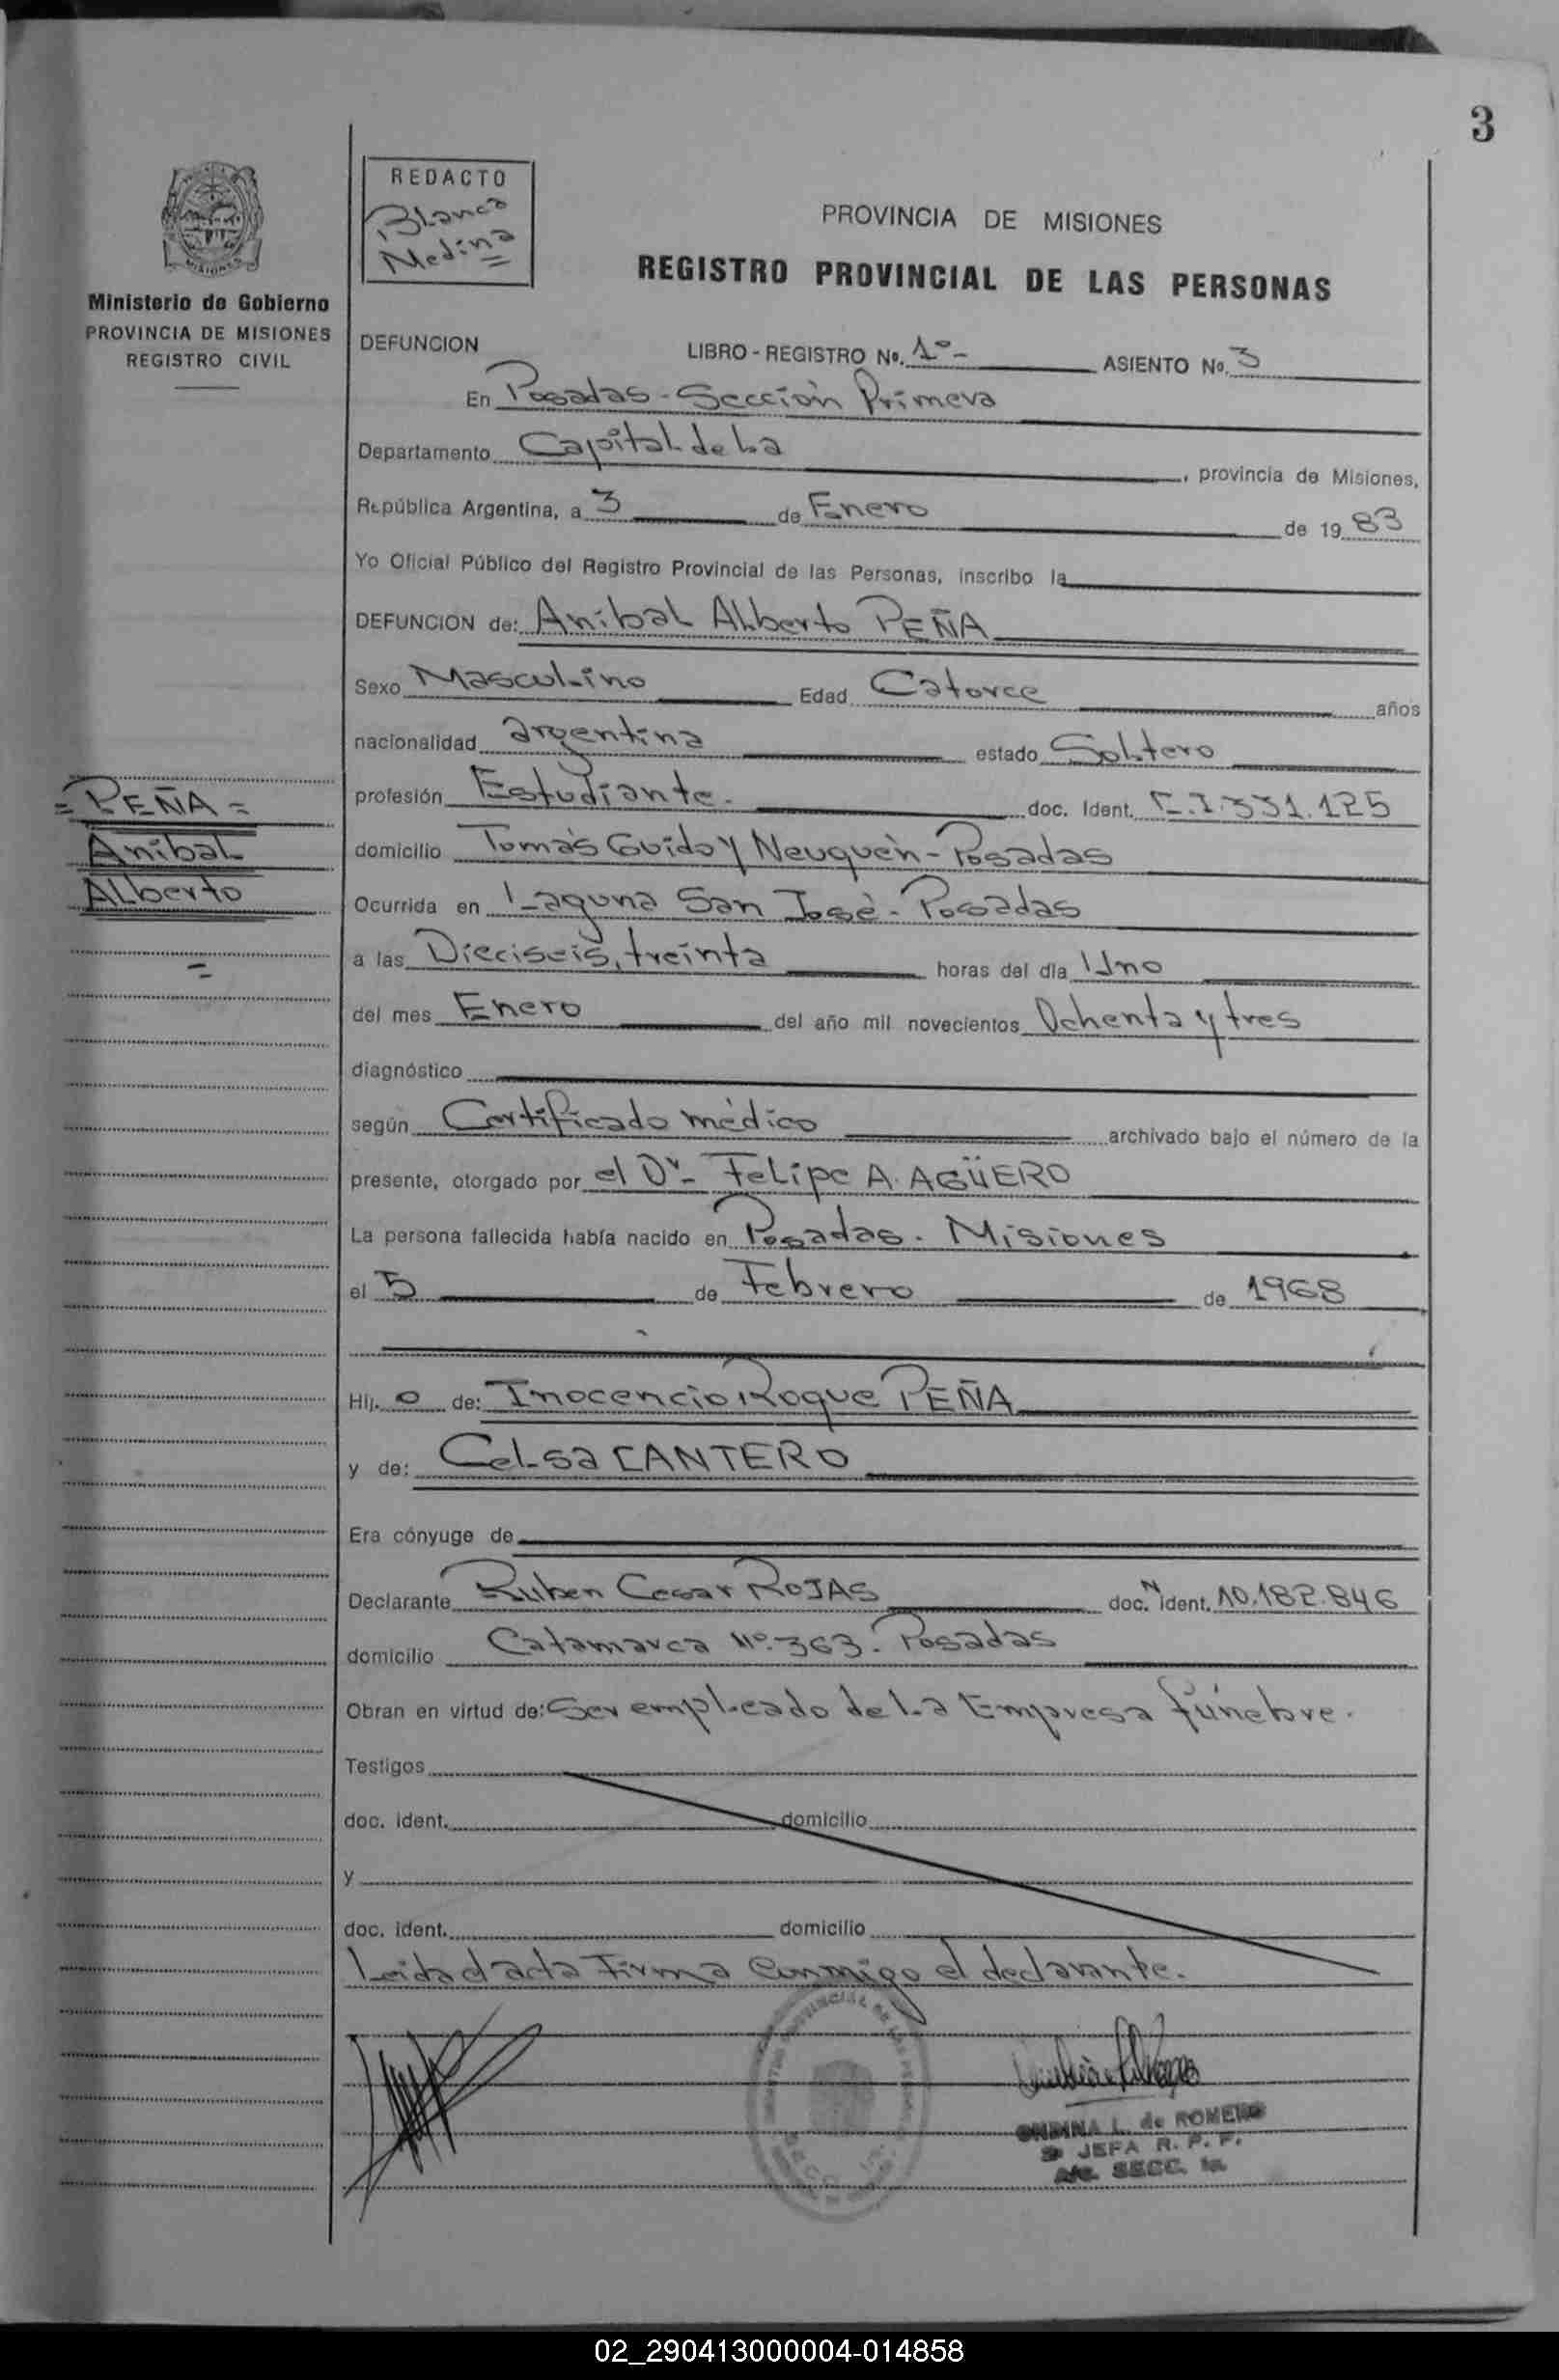 3
REDACTO
Blanca
Medina
MISIONES
Ministerio de Gobierno
PROVINCIA DE MISIONES
REGISTRO CIVIL
PROVINCIA DE MISIONES
REGISTRO PROVINCIAL DE LAS PERSONAS
DEFUNCION LIBRO - REGISTRO Nº. 1º- ASIENTO Nº. 3
En Posadas - Sección Primera
Departamento Capital de La , provincia de Misiones,
República Argentina, a 3 de Enero de 19 83
Yo Oficial Público del Registro Provincial de las Personas, inscribo la
DEFUNCION de: Anibal Alberto PEÑA
Sexo Masculino Edad Catorce años
nacionalidad argentina estado Soltero
profesión Estudiante. doc. Ident. C.I. 331.125
domicilio Tomás Guido y Neuquèn - Posadas
Ocurrida en Laguna San José - Posadas
a las Dieciseis, treinta horas del día Uno
del mes Enero del año mil novecientos Ochenta y tres
diagnóstico
según Certificado médico archivado bajo el número de la
presente, otorgado por el Dr- Felipe A. AGÜERO
La persona fallecida había nacido en Posadas - Misiones
el 5 de Febrero de 1968
Hij. o de: Inocencio Roque PEÑA
y de: Celsa CANTERO
Era cónyuge de
Declarante Ruben Cesar ROJAS doc. N ident. 10.182.846
domicilio Catamarca Nº. 363. Posadas
Obran en virtud de: Ser empleado de La Empresa fúnebre.
Testigos
doc. ident. domicilio
y
doc. ident. domicilio
Leida el acta Firma Conmigo el declarante.
= PEÑA =
Anibal
Alberto
=
ONDINA L. de ROMERO
JEFA R. P. P.
A/c. SECC. 1a.
02_290413000004-014858